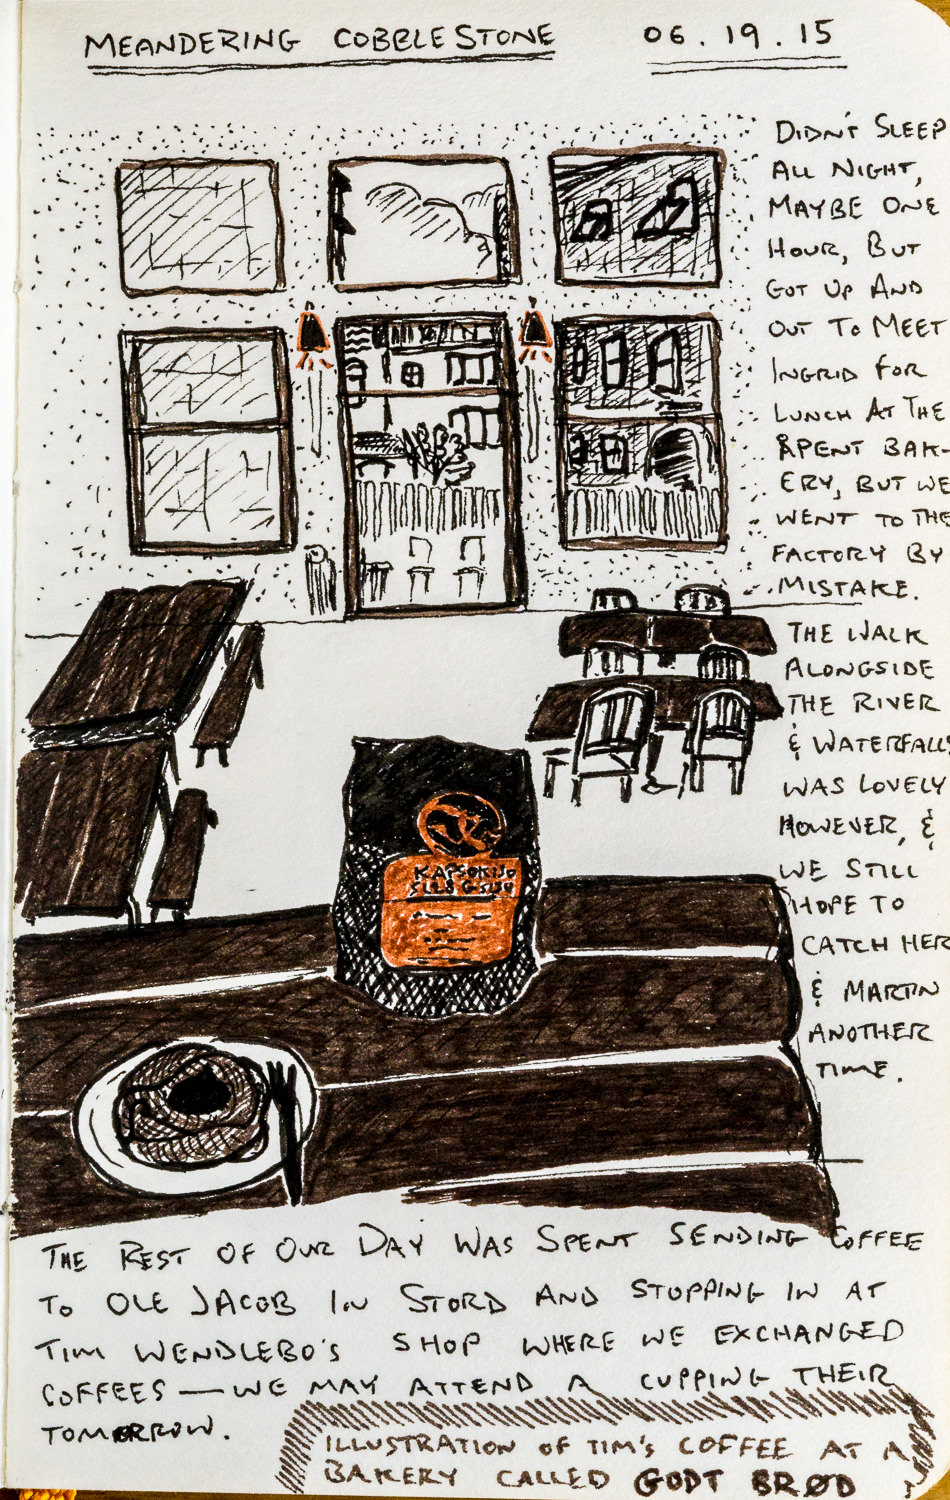 MEANDERING COBBLESTONE 06.19.15
DIDN'T SLEEP
ALL NIGHT,
MAYBE ONE
HOUR, BUT
GOT UP AND
OUT TO MEET
INGRID FOR
LUNCH AT THE
ÅPENT BAK-
ERY, BUT WE
WENT TO THE
FACTORY BY
MISTAKE.
THE WALK
ALONGSIDE
THE RIVER
& WATERFALLS
WAS LOVELY
HOWEVER, &
WE STILL
HOPE TO
CATCH HER
& MARTIN
ANOTHER
TIME.
KAPSOKISIO
THE REST OF OUR DAY WAS SPENT SENDING COFFEE
TO OLE JACOB IN STORD AND STOPPING IN AT
TIM WENDLEBO'S SHOP WHERE WE EXCHANGED
COFFEES — WE MAY ATTEND A CUPPING THEIR
TOMORROW.
ILLUSTRATION OF TIM'S COFFEE AT A
BAKERY CALLED GODT BRØD